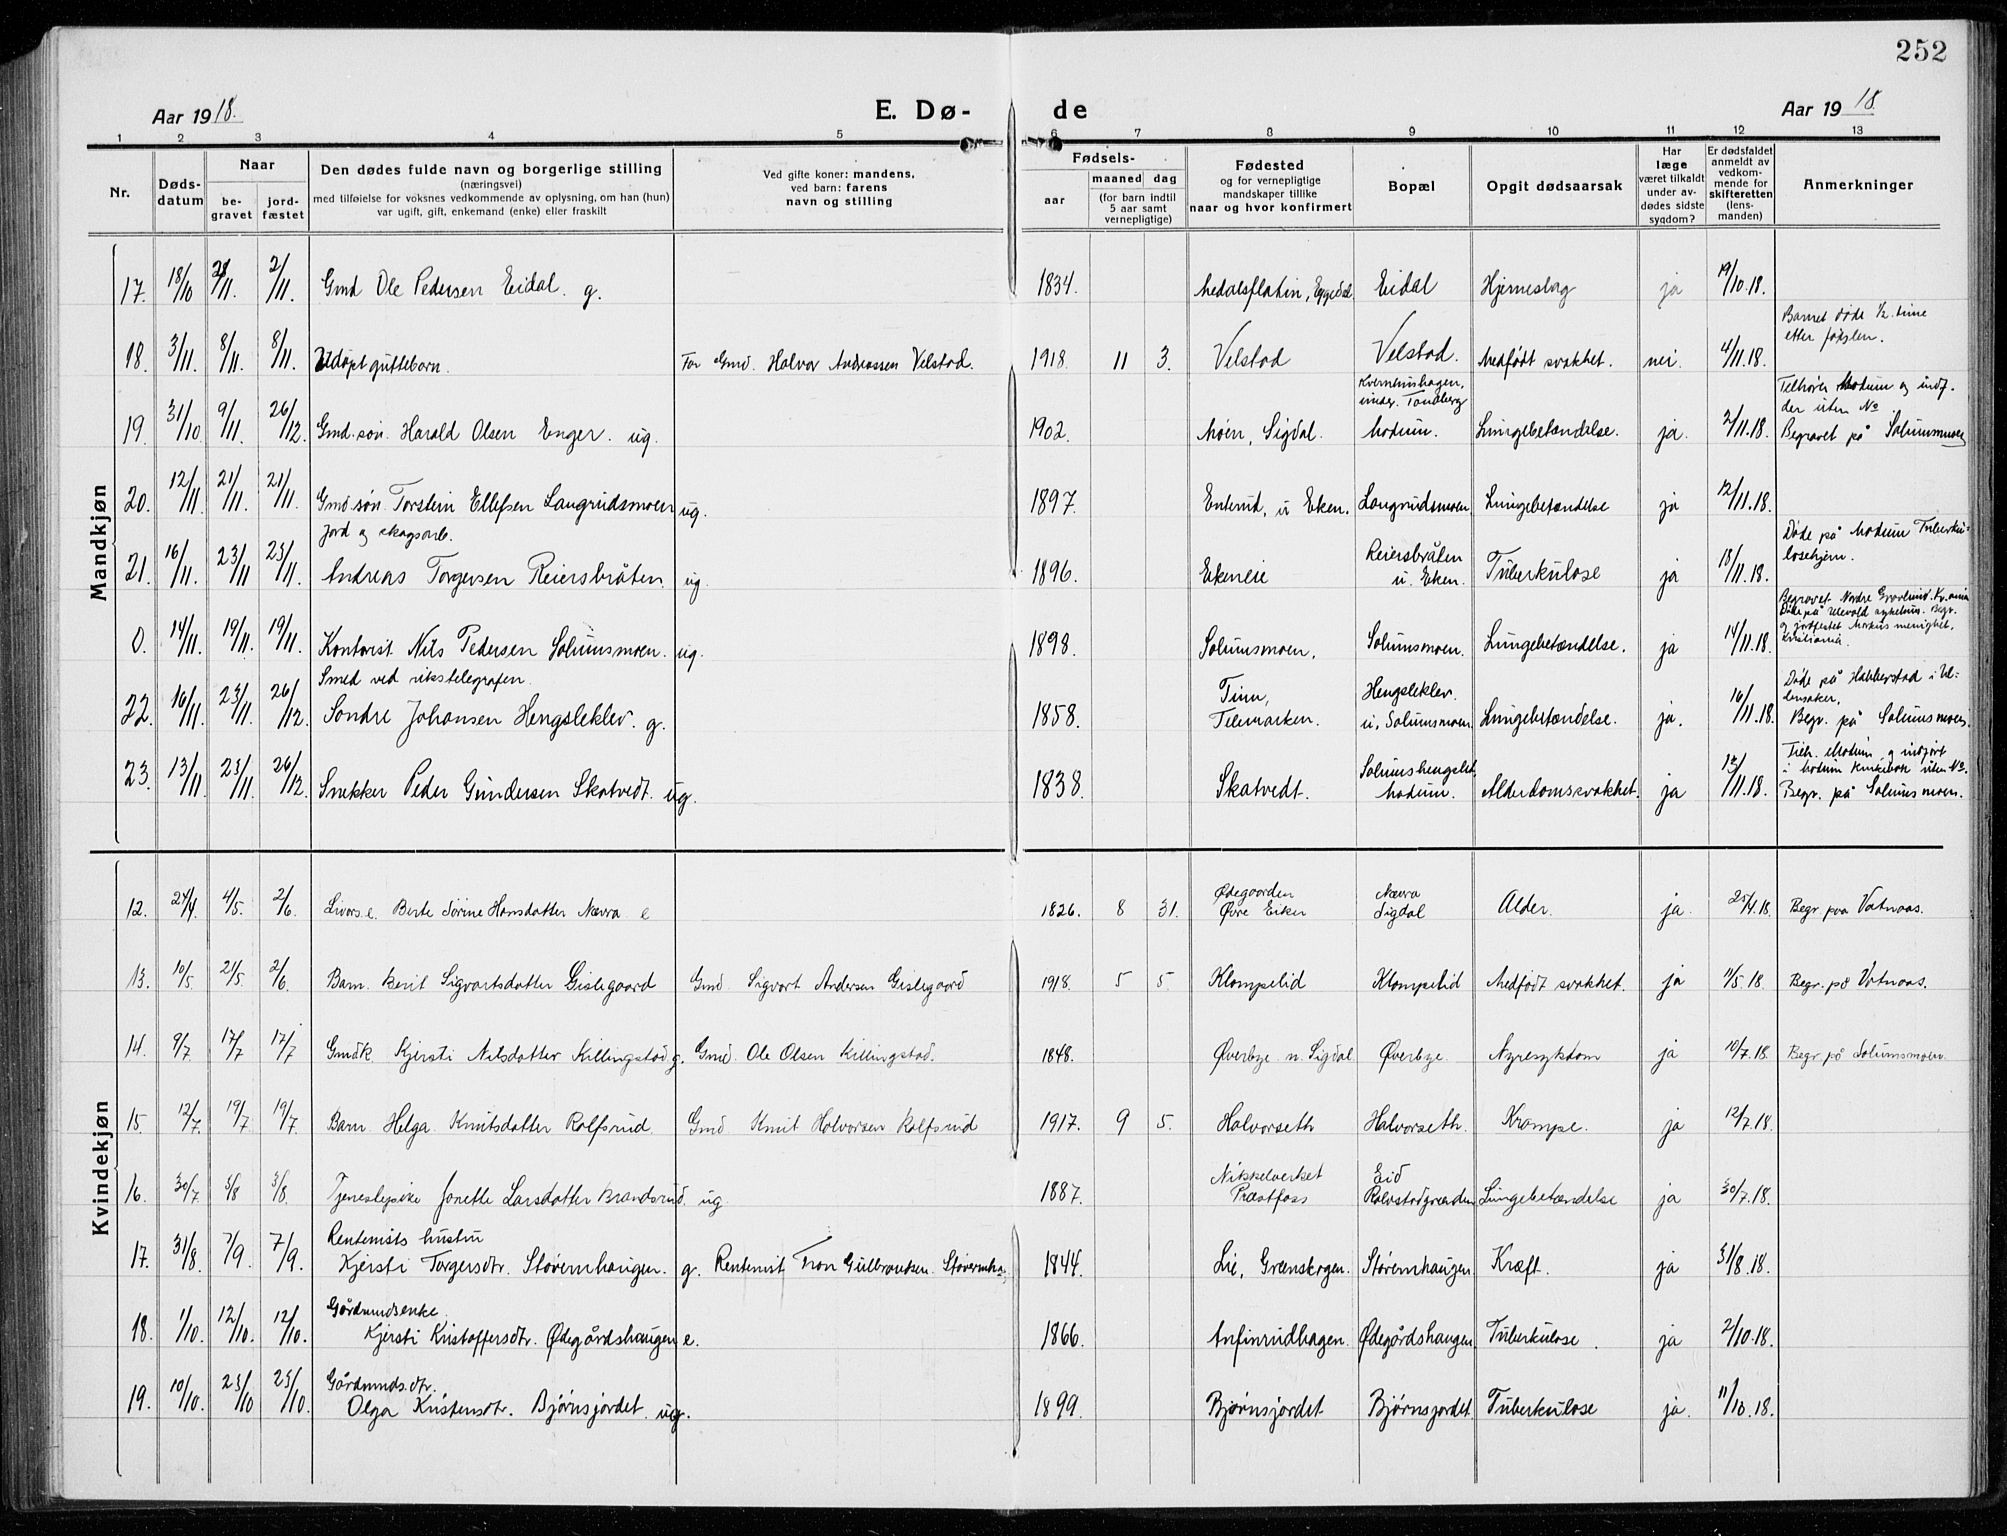 252
Aar 1918. E. Dø- de Aar 1918.
1 2 3 4 5 6 7 8 9 10 11 12 13
Nr. Døds-datum Naar be-gravet jord-fæstet Den dødes fulde navn og borgerlige stilling (næringsvei) med tilføielse for voksnes vedkommende av oplysning, om han (hun) var ugift, gift, enkemand (enke) eller fraskilt Ved gifte koner: mandens, ved barn: farens navn og stilling Fødsels- aar maaned dag (for barn indtil 5 aar samt vernepligtige) Fødested og for vernepligtige mandskaper tillike naar og hvor konfirmert Bopæl Opgit dødsaarsak Har læge været tilkaldt under av-dødes sidste sygdom? Er dødsfaldet anmeldt av vedkom-mende for skifteretten (lens-manden) Anmerkninger
Mandkjøn
17. 18/10 2/11. 2/11. Gmd Ole Pedersen Eidal. g. 1834. Medalsflatin, Eggedal Eidal Hjerneslag ja 19/10.18.
18. 3/11. 8/11. 8/11. Udøpt guttebarn. Far Gmd. Halvor Andreassen Velstad. 1918. 11 3. Velstad Velstad. Medfødt svakhet. nei. 4/11.18. Barnet døde 1/2 time etter fødslen.
19. 31/10 9/11. 26/12. Gmd.søn. Harald Olsen Enger. ug. 1902. Moen, Sigdal. Kvernhushagen, under Tandberg Modum. Lungebetændelse. ja. 2/11.18. Tilhører Modum og indf. der uten No Begravet på Solumsmoen
20. 12/11. 21/11. 21/11. Gmd søn Torstein Ellefsen Langrudsmoen ug. 1897. Enterud, u Eken. Langrudsmoen Lungebetændelse ja 12/11.18.
21. 16/11. 23/11 23/11. Jord og skogsarb. Andreas Torgersen Reiersbråten. ug. 1896. Ekeneie Reiersbråten u. Eken. Tuberkulose ja 18/11.18. Døde på Modum Tuberku-losehjem.
0. 14/11. 19/11. 19/11. Kontorist Nils Pedersen Solumsmoen. ug. 1898. Solumsmoen. Solumsmoen. Lungebetændelse. ja 14/11.18. Begravet Nordre Gravlund. Kr.ania Døde på Ulevold sykehus. Begr. og jordfestet Markus menighet, Kristiania.
22. 16/11. 23/11. 26/12. Smed ved rikstelegrafen. Sondre Johansen Hengsleklev. g. 1858. Tinn, Telemarken. Hengsleklev. u. Solumsmoen Lungebetændelse. ja. 16/11.18. Døde på Habberstad i Ul-lensaker, Begr. på Solumsmoen.
23. 13/11. 23/11. 26/12. Snekker Peder Gundersen Skatvedt. ug. 1838. Skatvedt. Solumshengslet, Modum. Alderdomssvakhet. ja 13/11.18. Tilh. Modum og indført i Modum kirkebok uten No. Begr. på Solumsmoen.
Kvindekjøn
12. 24/4. 4/5. 2/6. Livørs.e. Berte Sørine Hansdatter Nævra e 1826. 8 31. Ødegaarden Øvre Eiker Nævra Sigdal Alder. ja. 25/4.18. Begr. paa Vatnaas.
13. 10/5. 21/5. 2/6. Barn Berit Sigvartsdatter Gislegaard Gmd. Sigvart Andersen Gislegaard 1918. 5 5. Klompelid Klompelid Medfødt svakhet. ja 11/5.18. Begr. på Vatnaas.
14. 9/7 17/7 17/7 Gmdk. Kjersti Nilsdatter Killingstad g. Gmd. Ole Olsen Killingstad. 1848. Øverbye n. Sigdal Øverbye. Nyresykdom ja 10/7.18. Begr. på Solumsmoen
15. 12/7. 19/7 19/7. Barn Helga Knutsdatter Rolfsrud Gmd Knut Halvorsen Rolfsrud 1917. 9 5. Halvorseth Halvorseth. Krampe. ja 12/7.18.
16. 30/7. 3/8 3/8. Tjenestepike Jonette Larsdatter Brandsrud. ug 1887. Nikkelverket Præstfoss Eid Ralvstadgrænden Lungebetændelse ja 30/7.18.
17. 31/8. 7/9. 7/9. Rentenists hustru Kjersti Torgersdtr. Støvernhaugen. g. Rentenist Tron Gulbrandsen Støvernha. 1844. Lie, Grenskogen. Støvernhaugen. Kræft. ja 31/8.18.
18. 1/10. 12/10. 12/10. Gårdmandsenke. Kjersti Kristoffersdtr. Ødegårdshaugen e. 1866. Anfinrudhagen. Ødegårdshaugen. Tuberkulose. ja 2/10.18.
19. 10/10. 23/10 23/10. Gårdmands.dtr. Olga Kristensdtr. Bjørnsjordet. ug. 1899. Bjørnsjordet Bjørnsjordet. Tuberkulose ja. 11/10.18.